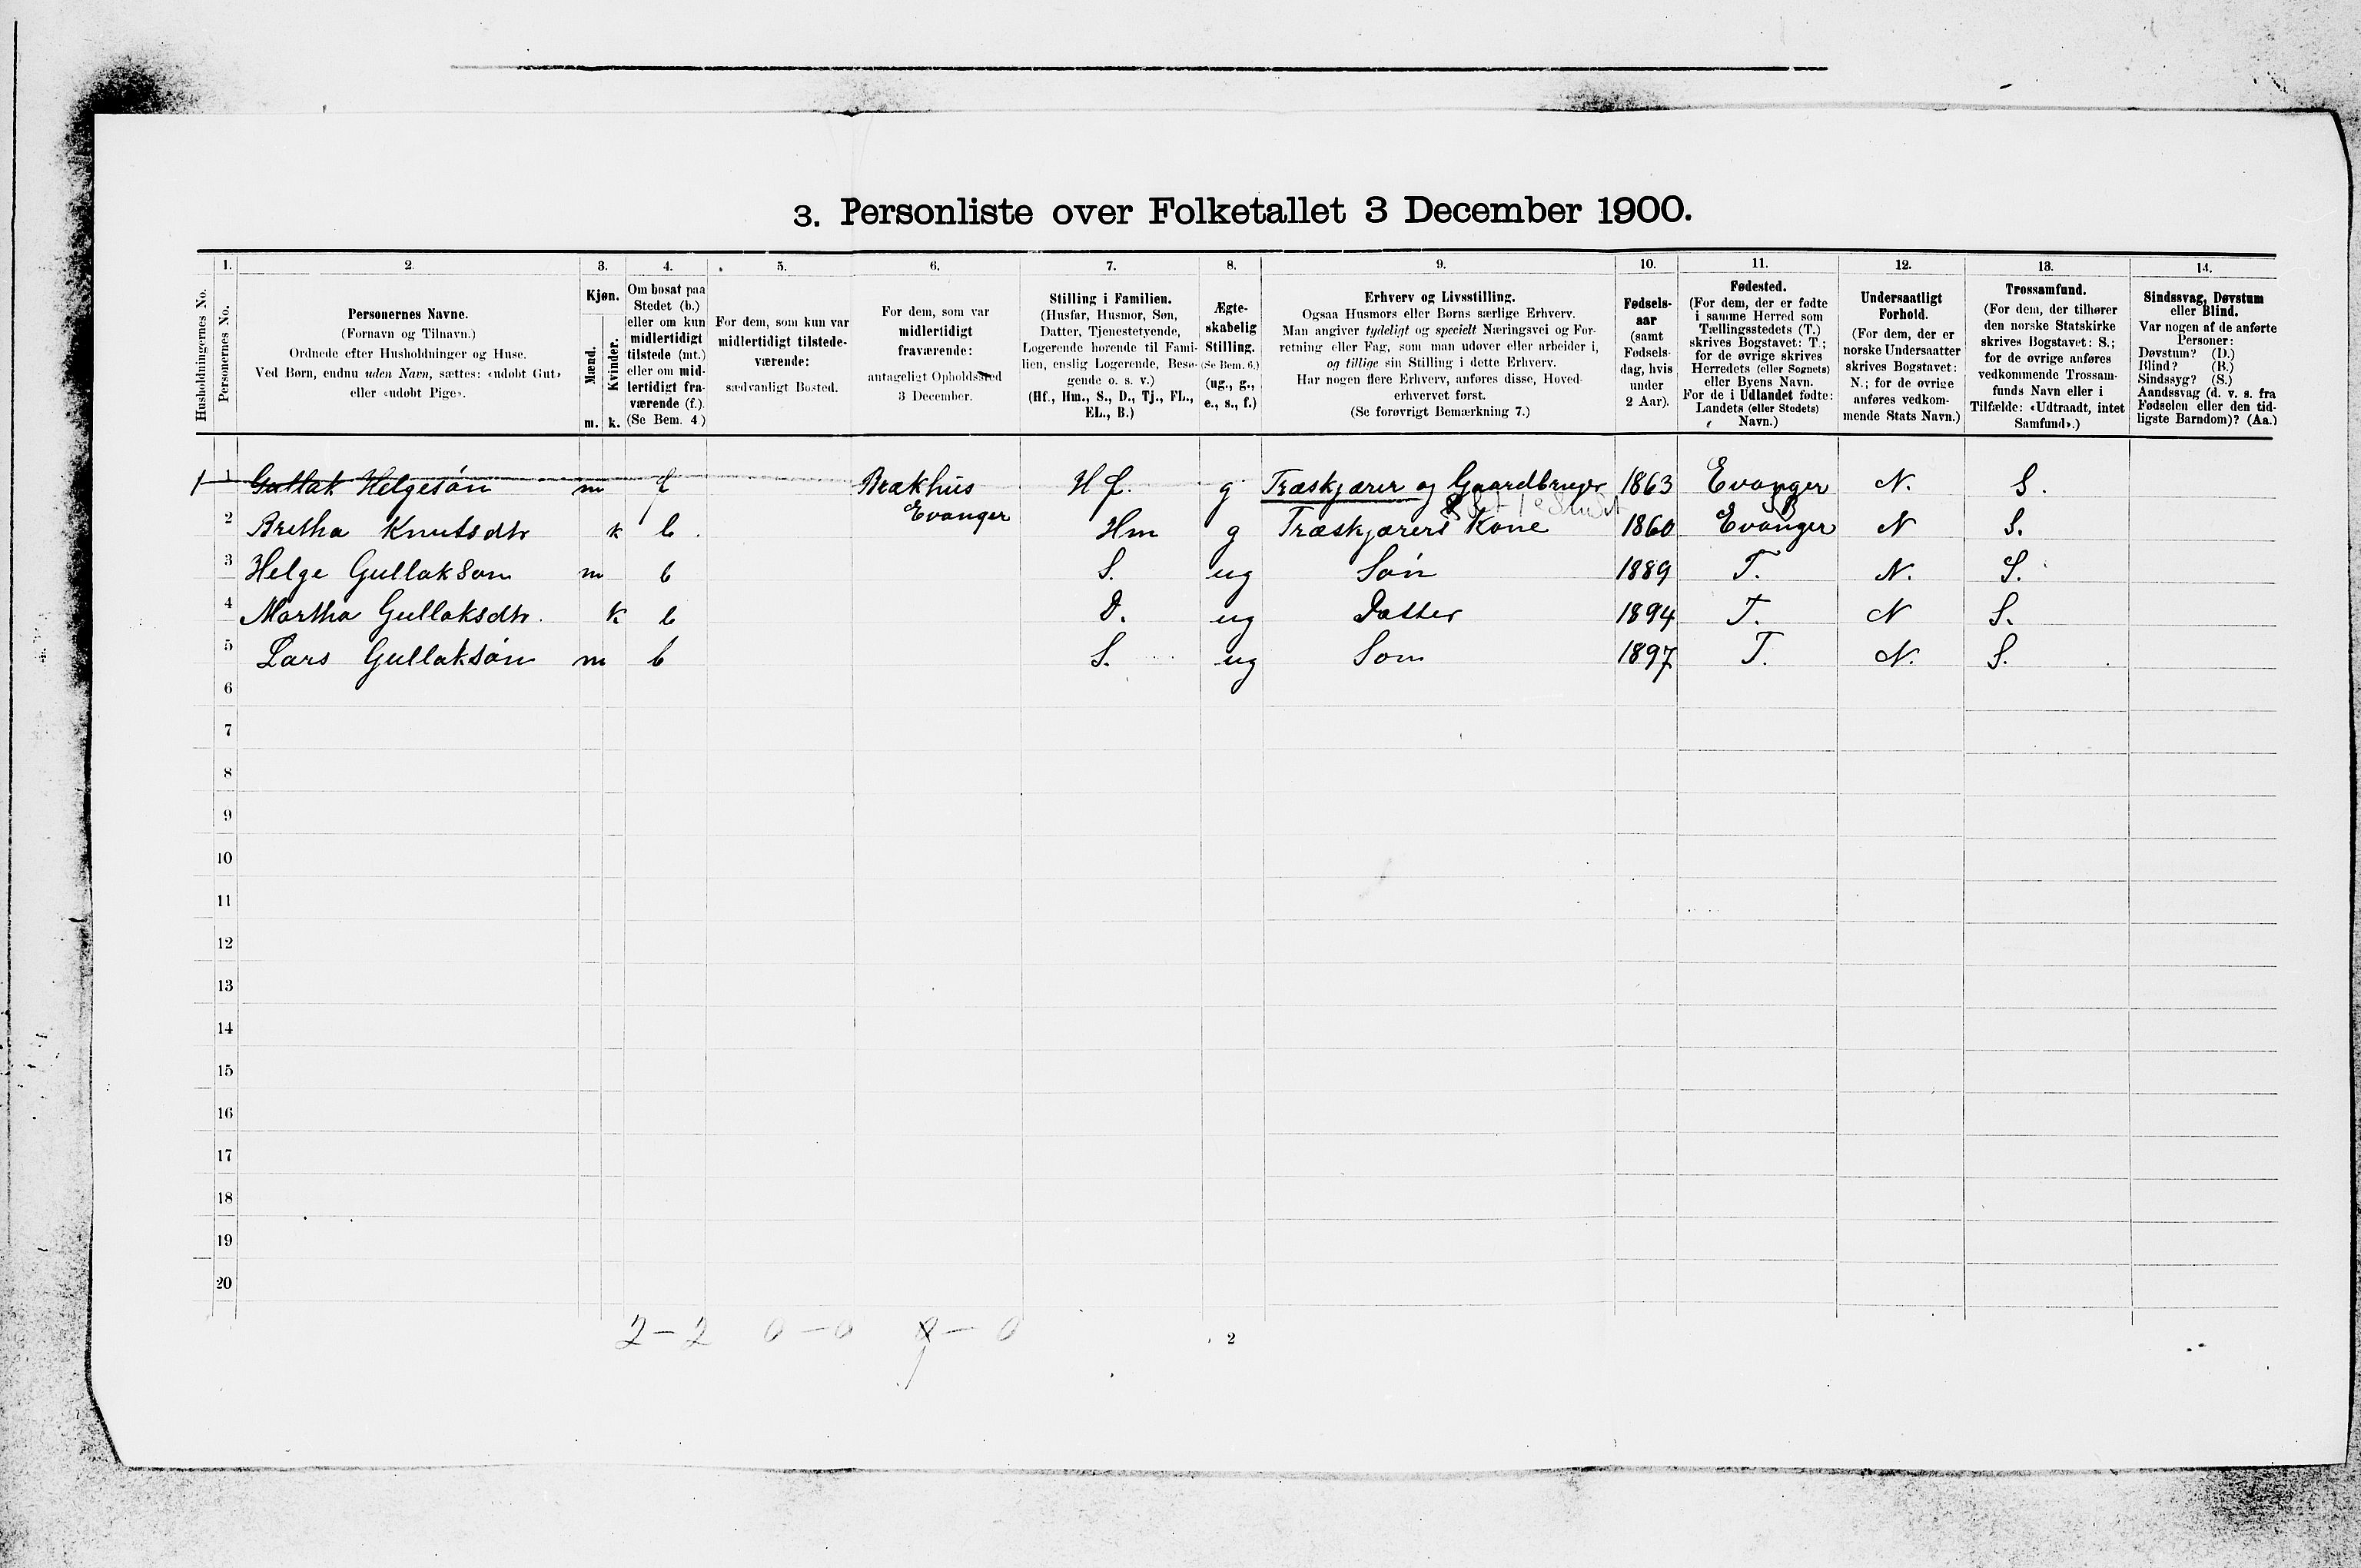 3. Personliste over Folketallet 3 December 1900.
Husholdningernes No.
1.
Personernes No.
2.
Personernes Navne.
(Fornavn og Tilnavn.)
Ordnede efter Husholdninger og Huse.
Ved Børn, endnu uden Navn, sættes: «udøbt Gut»
eller «udøbt Pige».
3.
Kjøn.
Mænd.
Kvinder.
m. k.
4.
Om bosat paa
Stedet (b.)
eller om kun
midlertidigt
tilstede (mt.)
eller om mid-
lertidigt fra-
værende (f.).
(Se Bem. 4.)
5.
For dem, som kun var
midlertidigt tilstede-
værende:
sædvanligt Bosted.
6.
For dem, som var
midlertidigt
fraværende:
antageligt Opholdssted
3 December.
7.
Stilling i Familien.
(Husfar, Husmor, Søn,
Datter, Tjenestetyende,
Logerende hørende til Fami-
lien, enslig Logerende, Besø-
gende o. s. v.)
(Hf., Hm., S., D., Tj., FL.,
EL., B.)
8.
Ægte-
skabelig
Stilling.
(Se Bem. 6.)
(ug., g.,
e., s., f.)
9.
Erhverv og Livsstilling.
Ogsaa Husmors eller Børns særlige Erhverv.
Man angiver tydeligt og specielt Næringsvei og For-
retning eller Fag, som man udøver eller arbeider i,
og tillige sin Stilling i dette Erhverv.
Har nogen flere Erhverv, anføres disse, Hoved-
erhvervet først.
(Se forøvrigt Bemærkning 7.)
10.
Fødsels-
aar
(samt
Fødsels-
dag, hvis
under
2 Aar).
11.
Fødested.
(For dem, der er fødte
i samme Herred som
Tællingsstedets (T.)
skrives Bogstavet: T.;
for de øvrige skrives
Herredets (eller Sognets)
eller Byens Navn.
For de i Udlandet fødte:
Landets (eller Stedets)
Navn.)
12.
Undersaatligt
Forhold.
(For dem, der er
norske Undersaatter
skrives Bogstavet:
N.; for de øvrige
anføres vedkom-
mende Stats Navn.)
13.
Trossamfund.
(For dem, der tilhører
den norske Statskirke
skrives Bogstavet: S.;
for de øvrige anføres
vedkommende Trossam-
funds Navn eller i
Tilfælde: «Udtraadt, intet
Samfund».)
14.
Sindssvag, Døvstum
eller Blind.
Var nogen af de anførte
Personer:
Døvstum? (D.)
Blind? (B.)
Sindssyg? (S.)
Aandssvag (d. v. s. fra
Fødselen eller den tid-
ligste Barndom)? (Aa.)
1 1 Gullak Helgesøn m f Brækhus Hf. g Træskjærer og Gaardbruger 1863 Evanger N. S.
Evanger
2 Bretha Knutsdtr k b. Hm g Træskjærers Kone 1860 Evanger N S.
3 Helge Gullakson m b S. ug Søn 1889 T. N. S.
4 Martha Gullaksdtr. k b D. ug Datter 1894 T. N S.
5 Lars Gullaksøn m b S. ug Søn 1897 T. N. S.
6
7
8
9
10
11
12
13
14
15
16
17
18
19
20
2-2 0-0 0
2